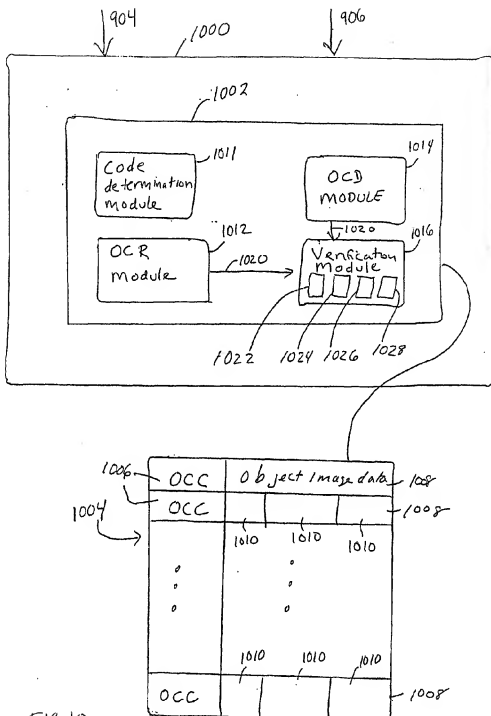 904
906
1000
1002
Code
determination
module
1011
OCD
MODULE
1014
1020
OCR
module
1012
1020
Verification
module
1016
1022
1024
1026
1028
1006
OCC
Object Image data
1008
1004
OCC
1008
1010
1010
1010
1010
1010
1010
OCC
1008